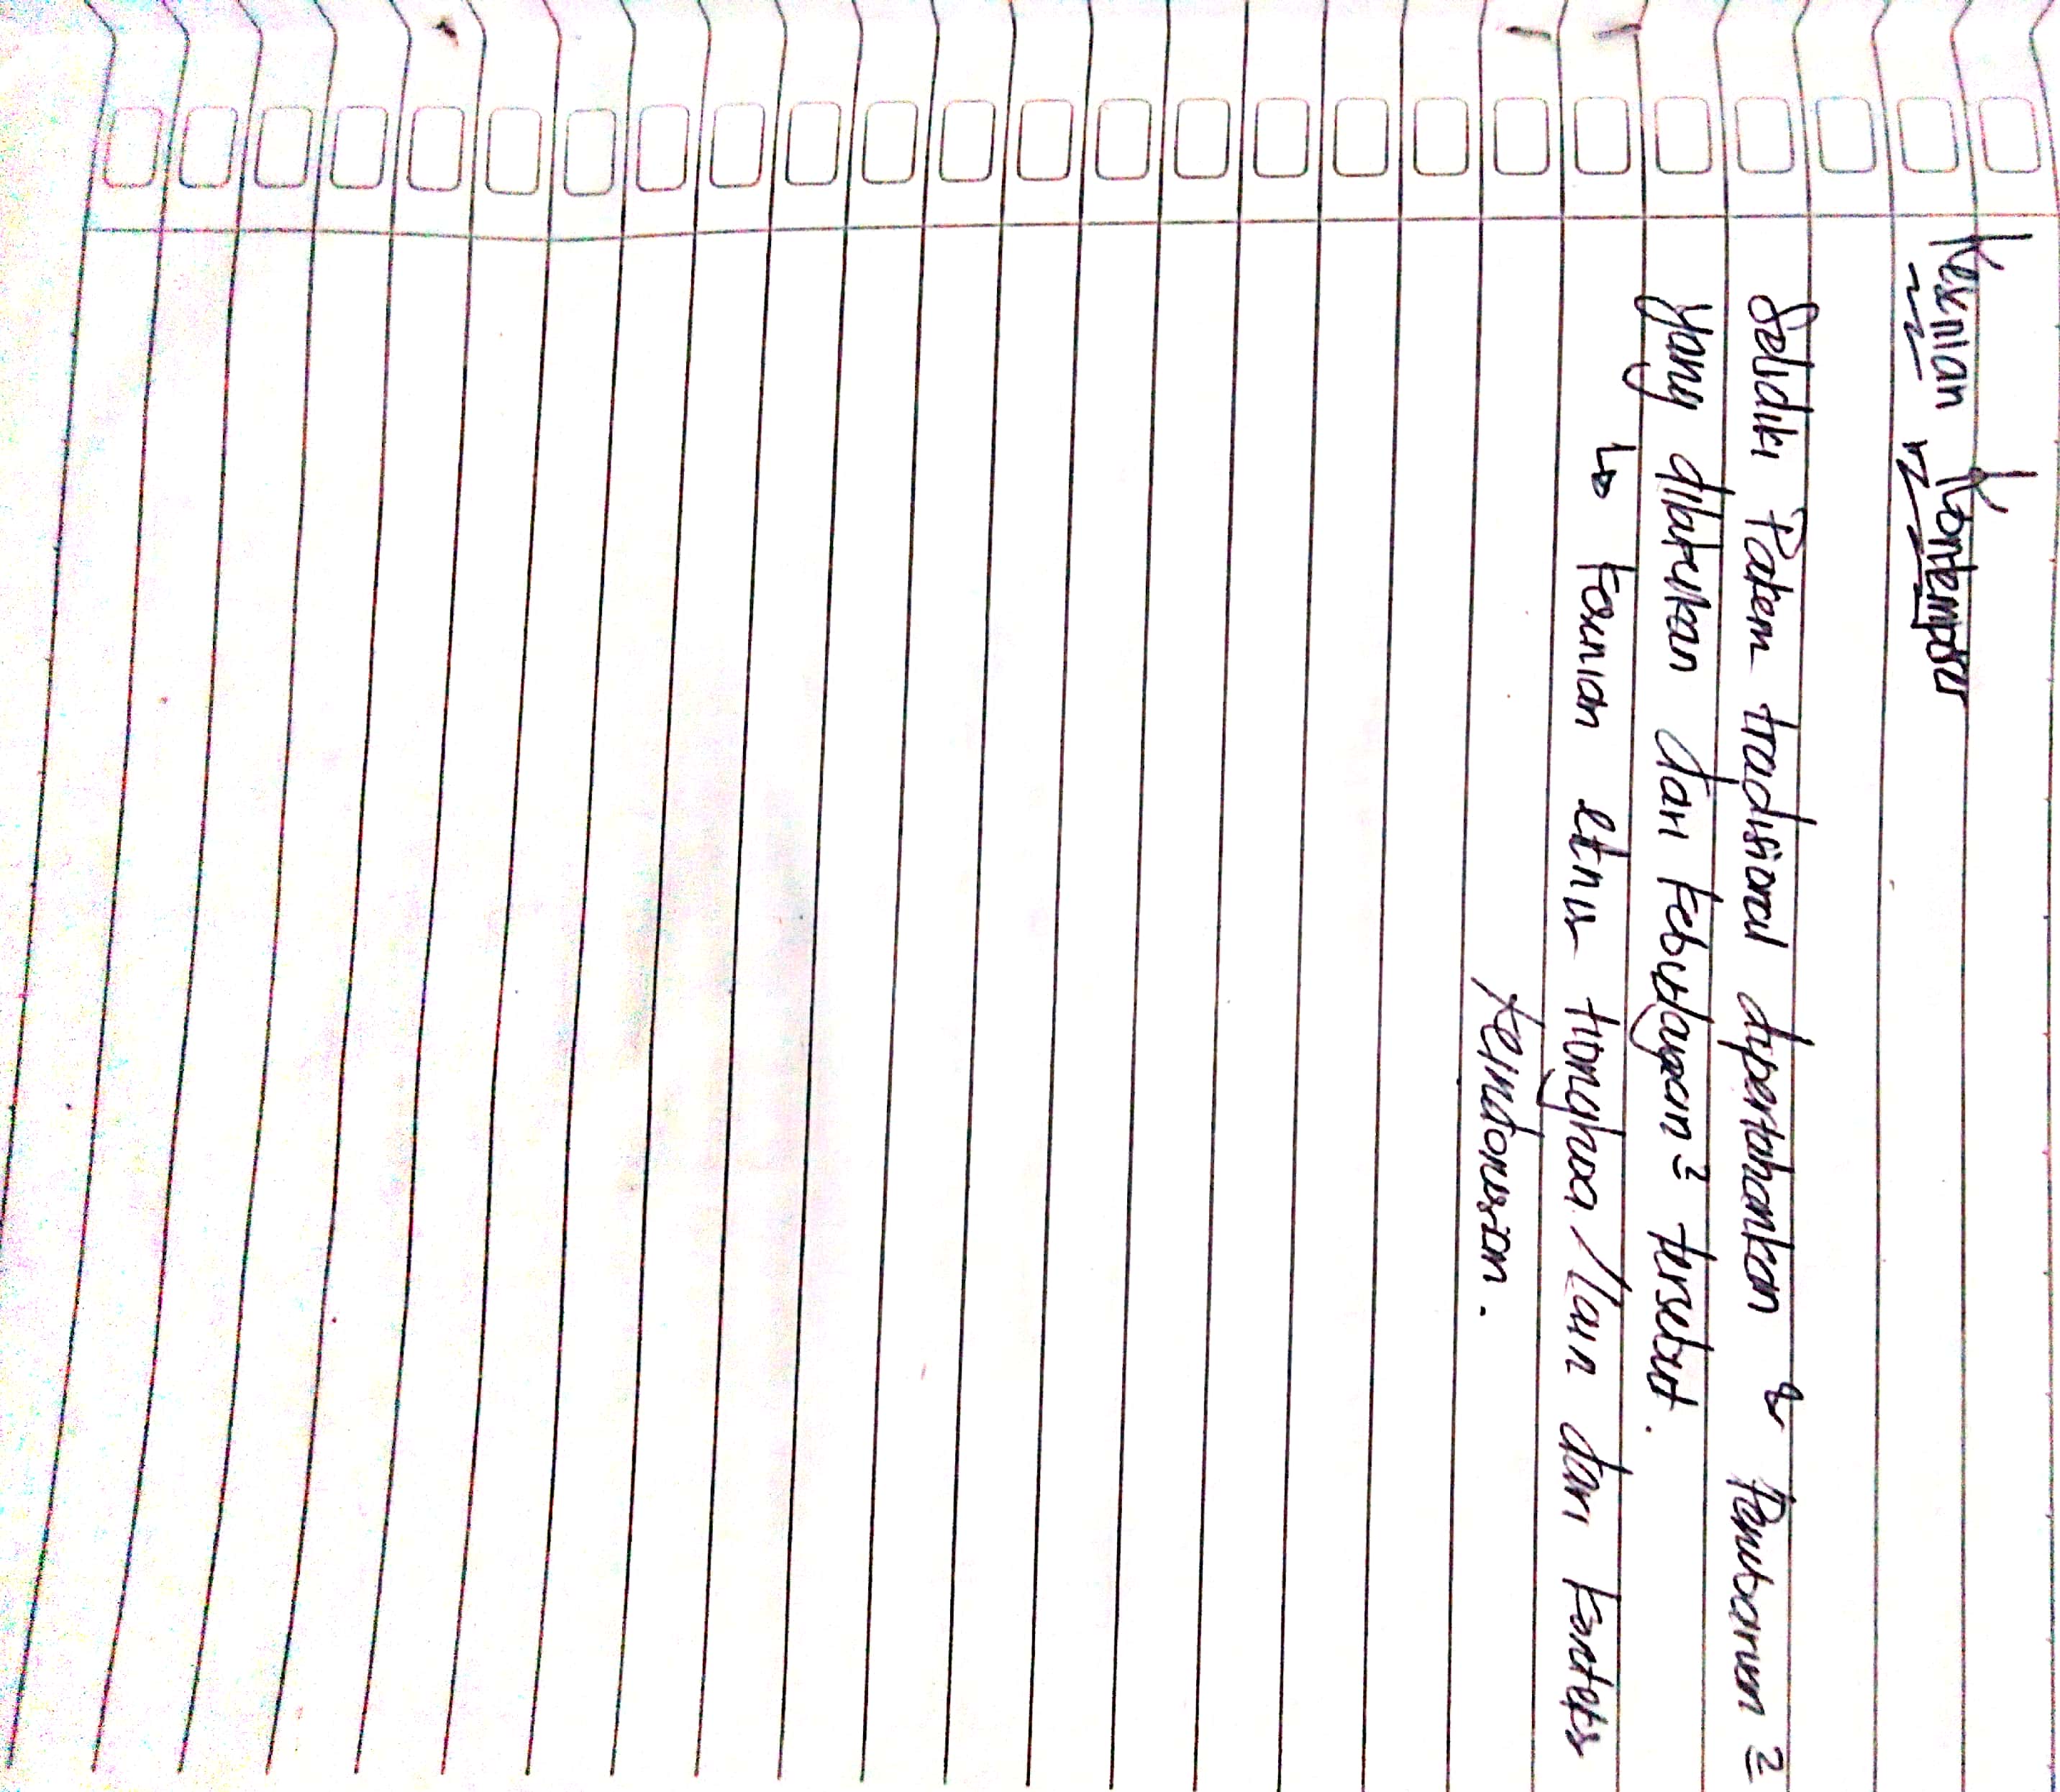 Kesenian Kontemporer
Selidiki Pakem tradisional dipertahankan & Pembaruan ²
yang dilakukan dari kebudayaan ² tersebut.
↳ Kesenian etnis tionghoa / lain dari konteks
keindonesiaan.